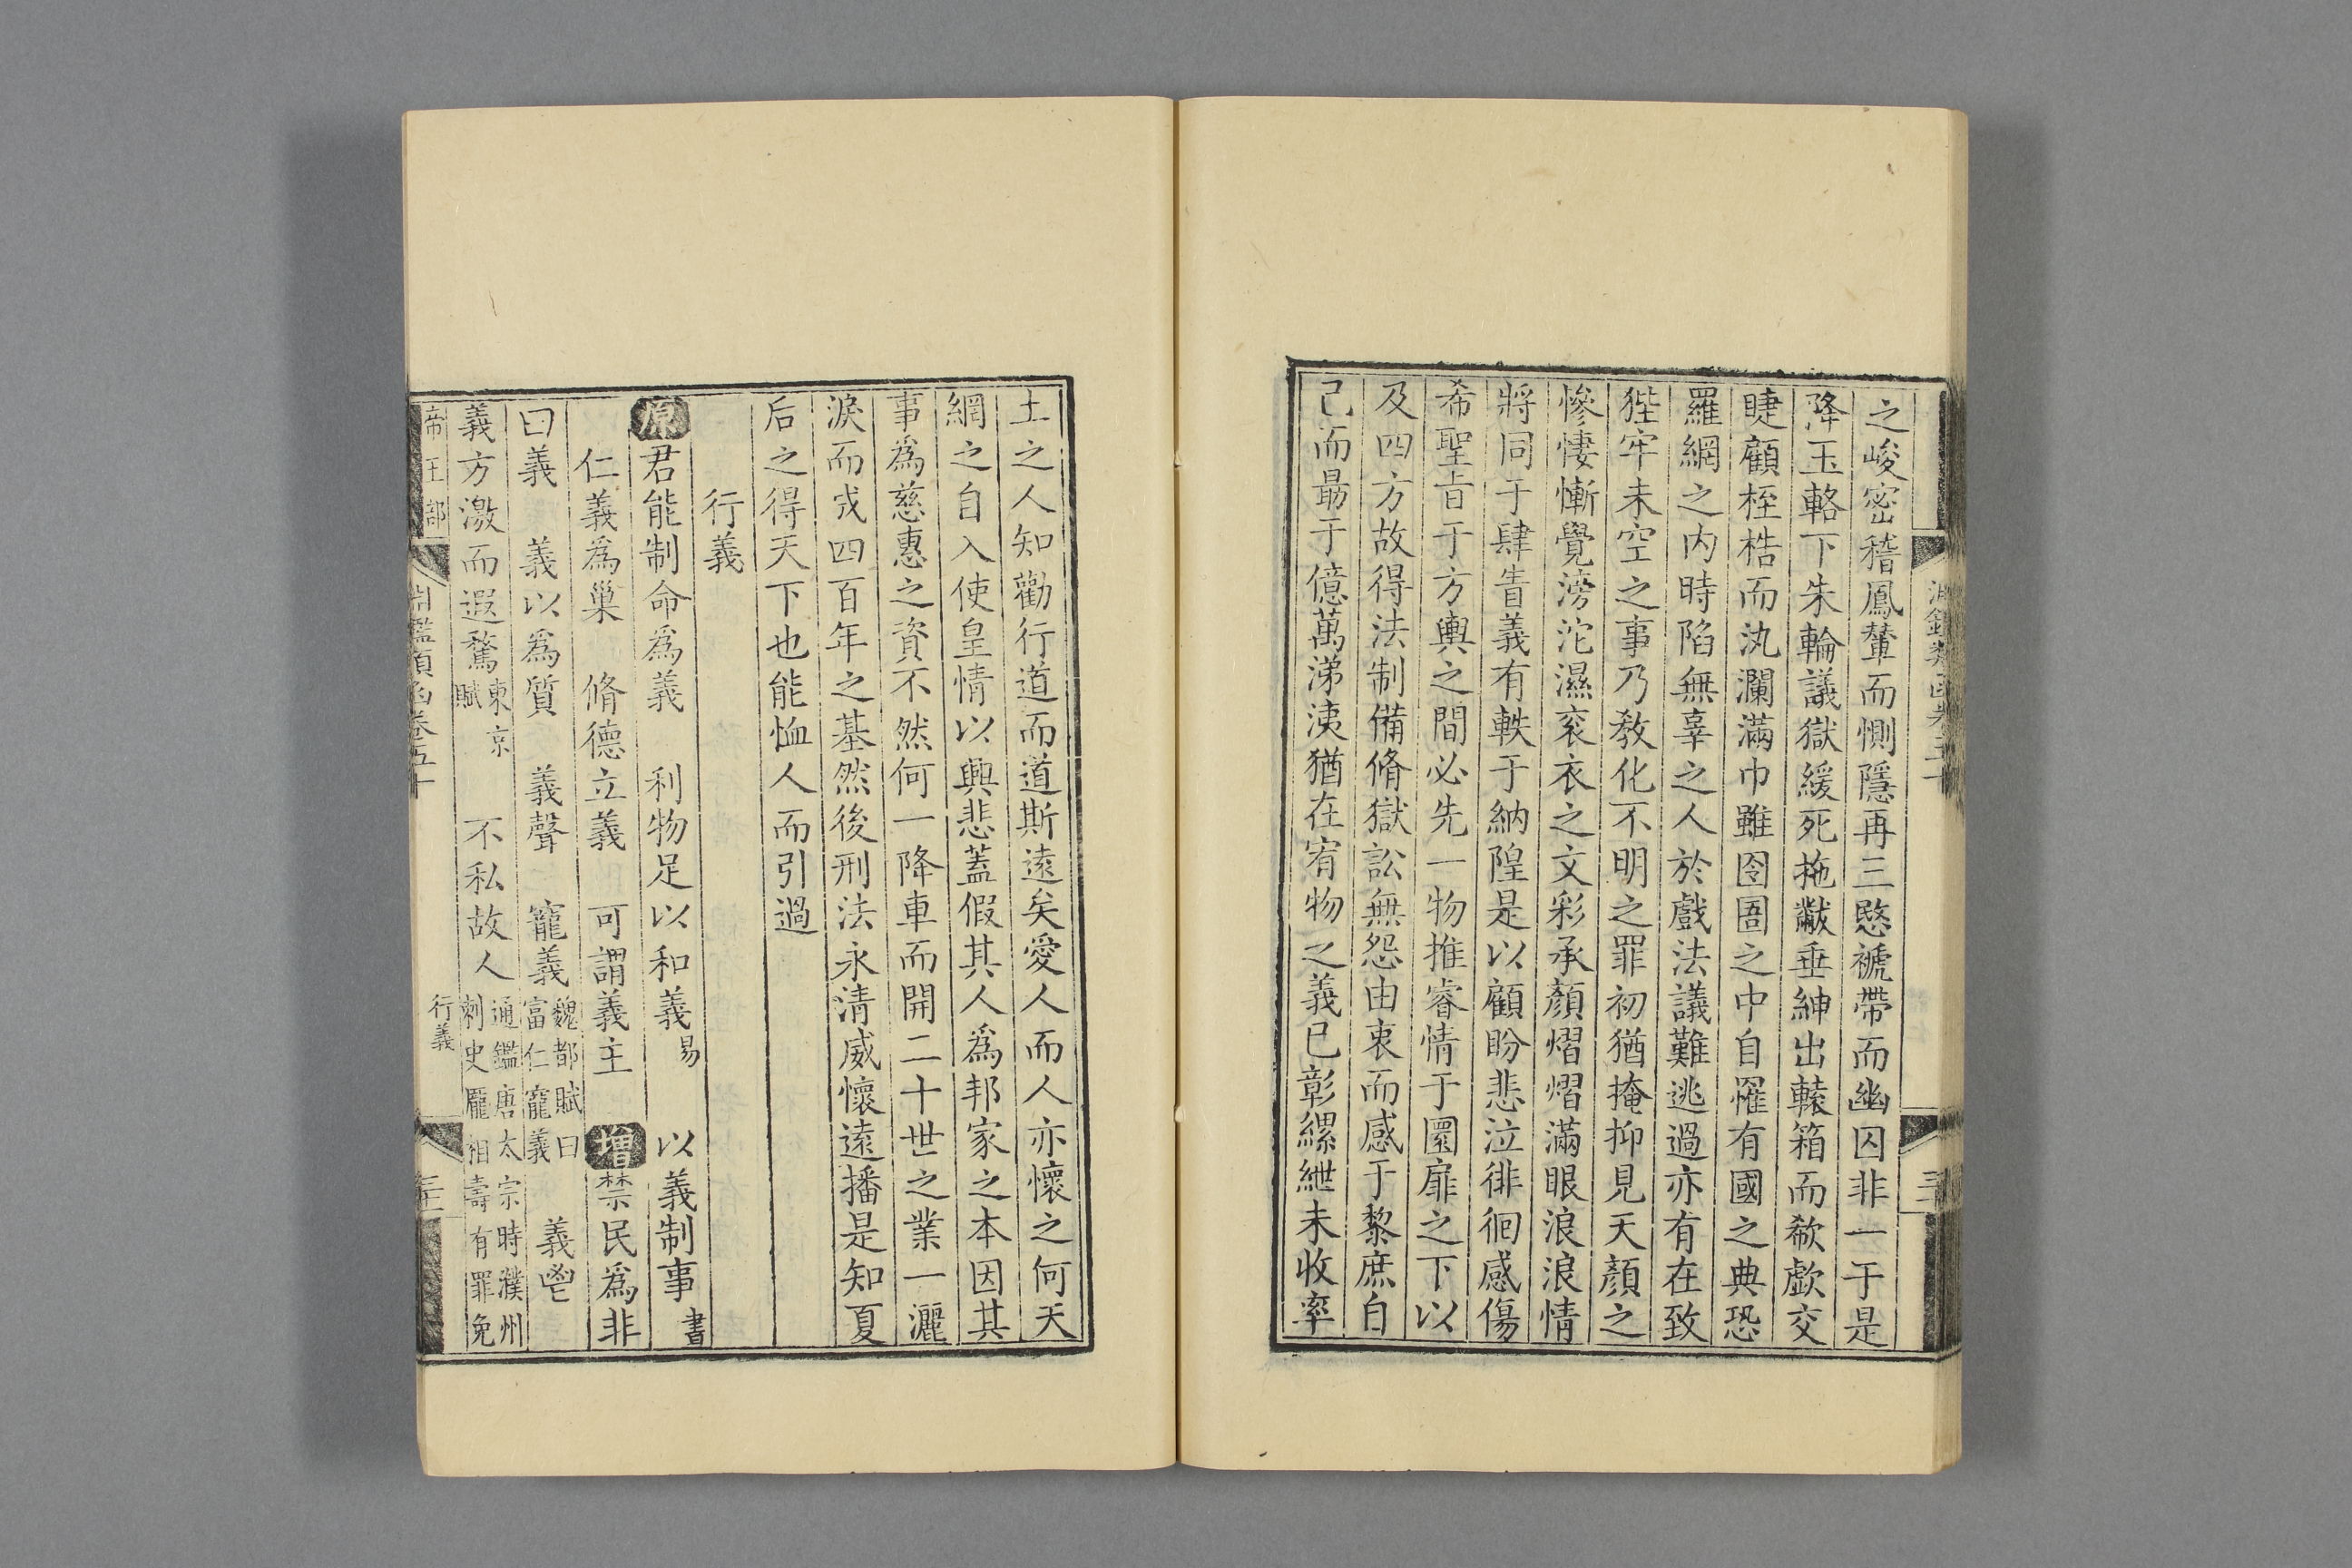 之峻密稽鳳輦而惻隱再三愍褫帶而幽囚非一于是
降玉輅下朱輪議獄緩死拖黻垂紳出轅箱而欷歔交
睫顧桎梏而汍瀾滿巾雖囹圄之中自罹有國之典恐
羅網之内時陷無辜之人於戲法議難逃過亦有在致
狴牢未空之事乃敎化不明之罪初猶掩抑見天顏之
慘悽慚覺滂沱濕衮衣之文彩承顏熠熠滿眼浪浪情
將同于肆眚義有軼于納隍是以顧盼悲泣徘徊感傷
希聖旨于方輿之間必先一物推睿情于圜扉之下以
及四方故得法制備脩獄訟無怨由衷而感于黎庶自
己而最于億萬涕洟猶在宥物之義已彰縲紲未收率
土之人知勸行道而道斯遠矣愛人而人亦懷之何天
網之自入使皇情以興悲蓋假其人爲邦家之本因其
事爲慈惠之資不然何一降車而開二十世之業一灑
淚而成四百年之基然後刑法永清威懷遠播是知夏
后之得天下也能恤人而引過
行義
原君能制命爲義 利物足以和義易 以義制事書
仁義爲巢 脩德立義 可謂義主 增禁民爲非
曰義 義以爲質 義聲 寵義魏都賦曰富仁寵義 義鬯
義方激而遐騖東京賦 不私故人通鑑唐太宗時濮州刺史龐相壽有罪免
帝王部 淵鑑類函卷五十 行義